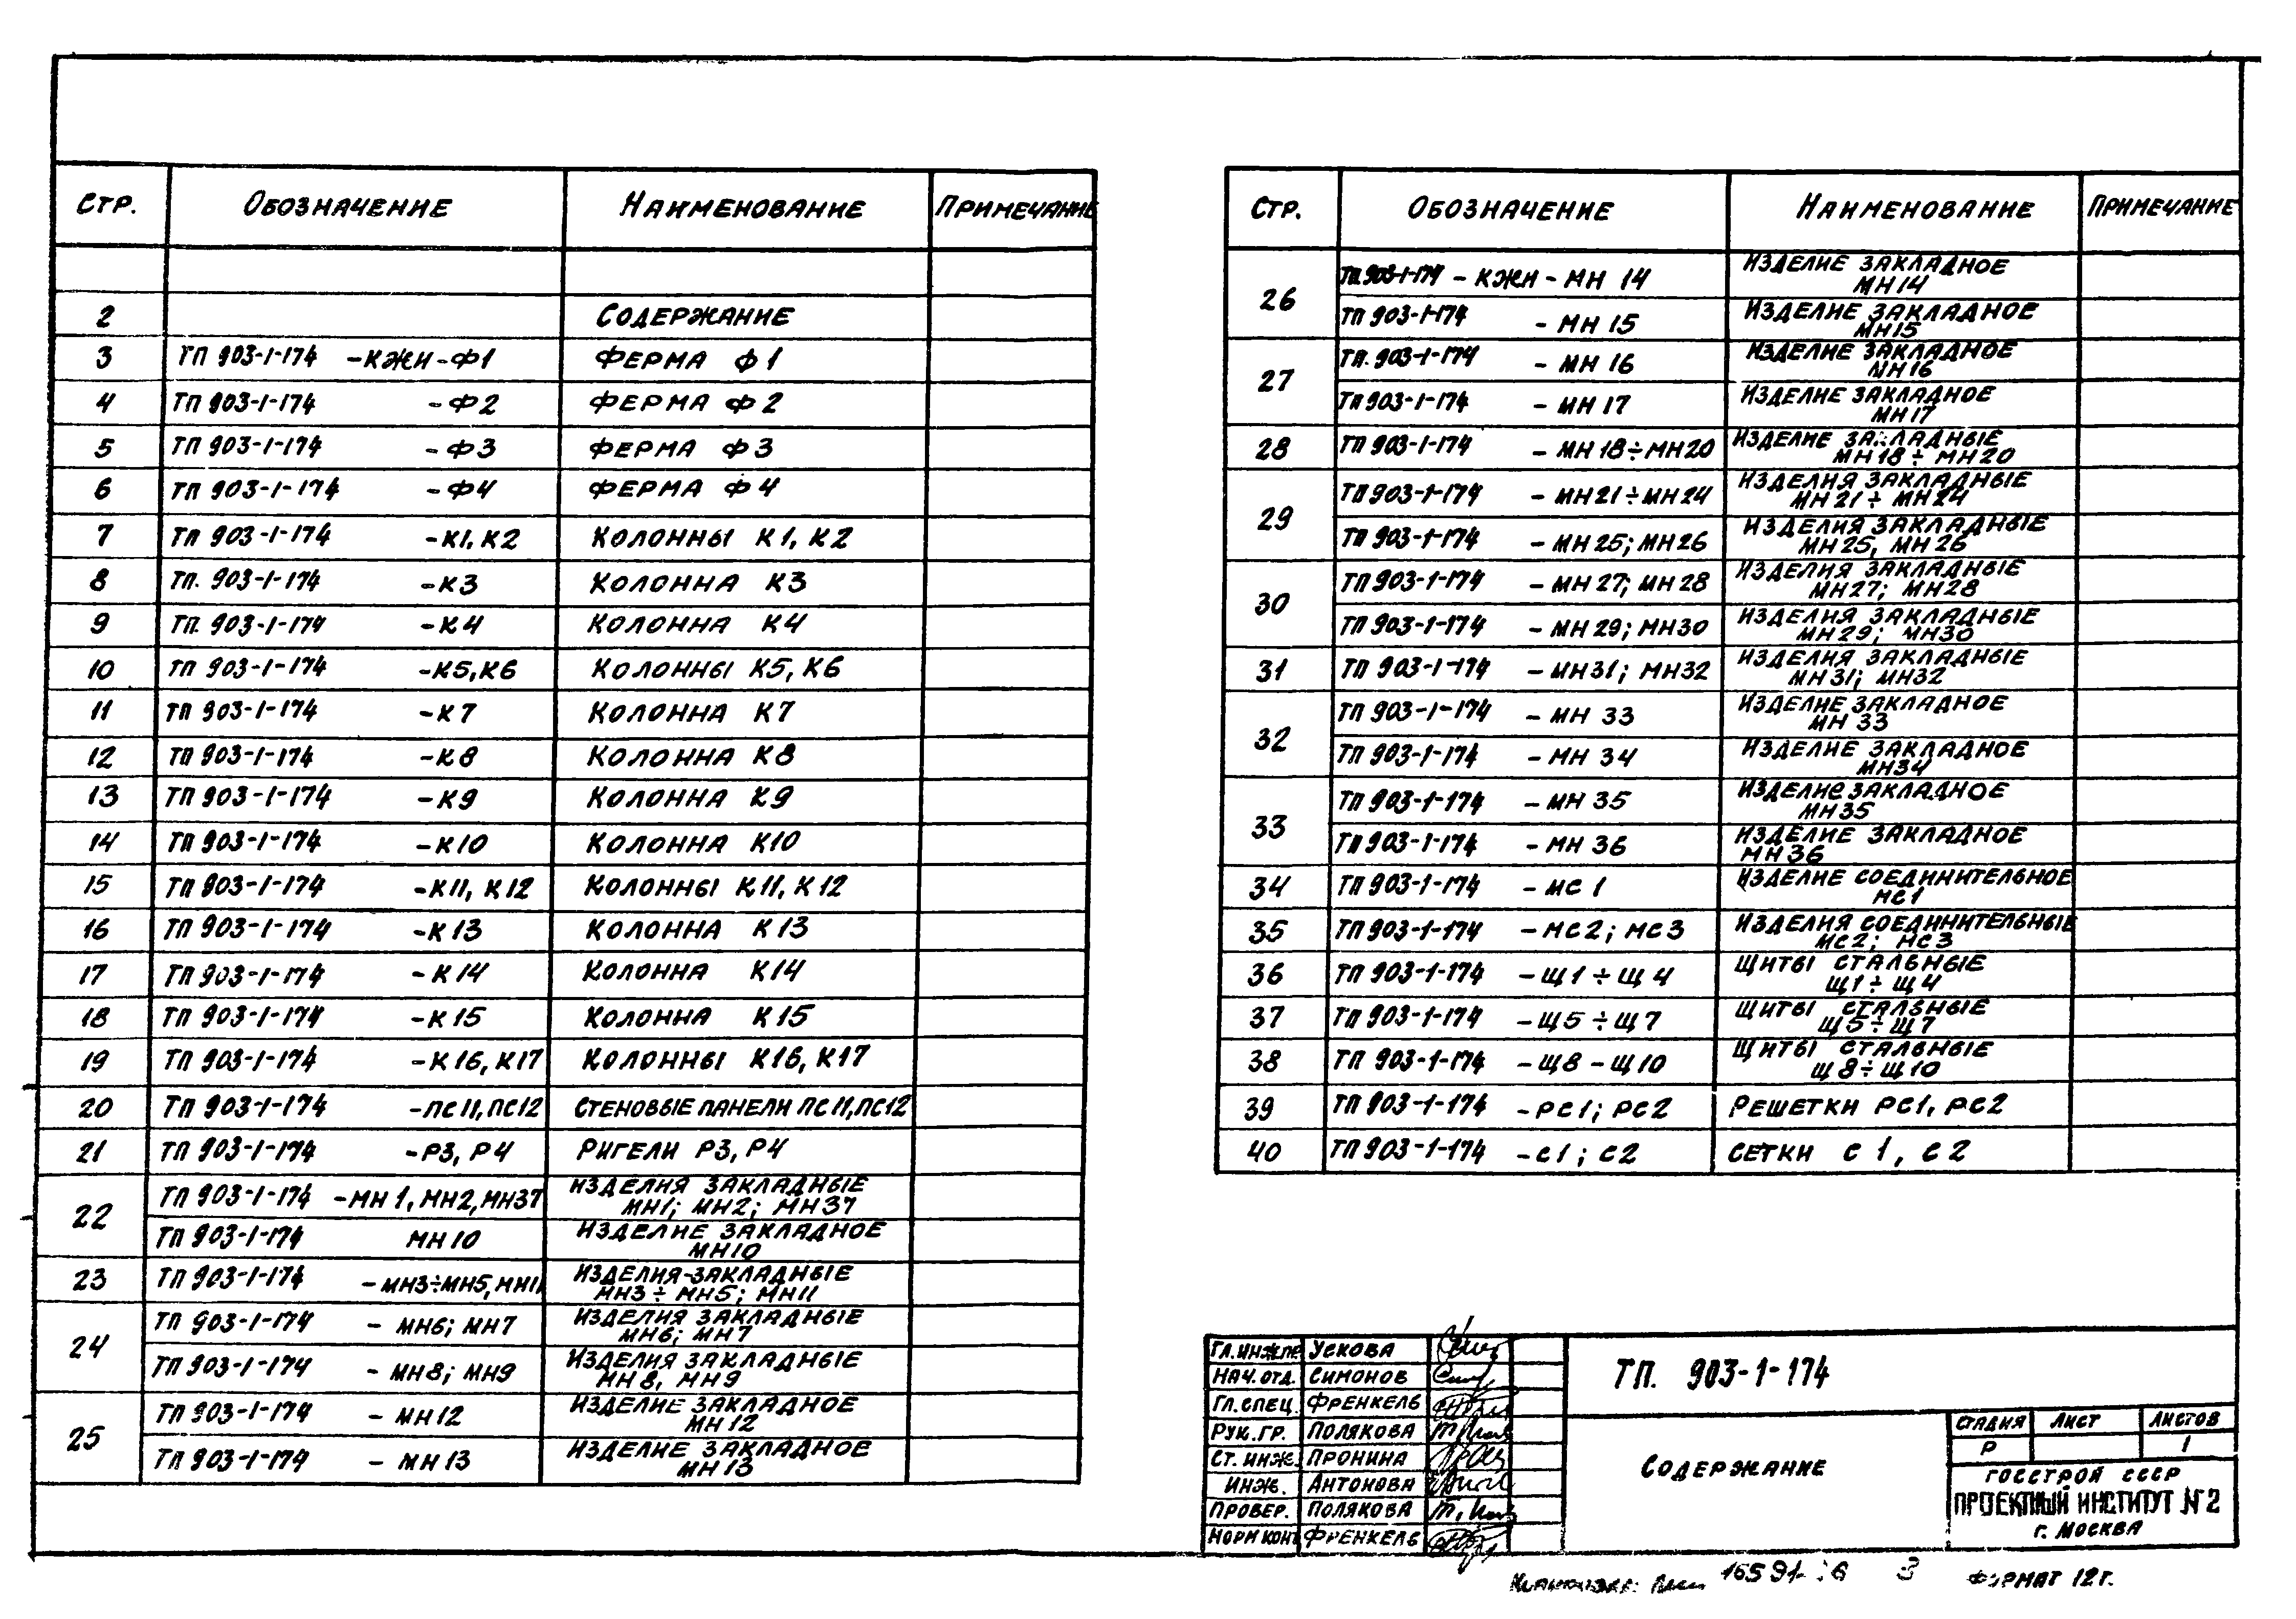 Стр. Обозначение Наименование Примечание
2 Содержание
3 ТП 903-1-174 -КЖИ-Ф1 Ферма Ф1
4 ТП 903-1-174 -Ф2 Ферма Ф2
5 ТП 903-1-174 -Ф3 Ферма Ф3
6 ТП 903-1-174 -Ф4 Ферма Ф4
7 ТП 903-1-174 -К1, К2 Колонны К1, К2
8 ТП. 903-1-174 -К3 Колонна К3
9 ТП. 903-1-174 -К4 Колонна К4
10 ТП 903-1-174 -К5, К6 Колонны К5, К6
11 ТП 903-1-174 -К7 Колонна К7
12 ТП 903-1-174 -К8 Колонна К8
13 ТП 903-1-174 -К9 Колонна К9
14 ТП 903-1-174 -К10 Колонна К10
15 ТП 903-1-174 -К11, К12 Колонны К11, К12
16 ТП 903-1-174 -К13 Колонна К13
17 ТП 903-1-174 -К14 Колонна К14
18 ТП 903-1-174 -К15 Колонна К15
19 ТП 903-1-174 -К16, К17 Колонны К16, К17
20 ТП 903-1-174 -ПС11, ПС12 Стеновые панели ПС11, ПС12
21 ТП 903-1-174 -Р3, Р4 Ригели Р3, Р4
22 ТП 903-1-174 -МН1, МН2, МН37 Изделия закладные
МН1; МН2; МН37
ТП 903-1-174 МН10 Изделие закладное
МН10
23 ТП 903-1-174 -МН3÷МН5, МН11 Изделия-закладные
МН3÷МН5; МН11
24 ТП 903-1-174 - МН6; МН7 Изделия закладные
МН6; МН7
ТП 903-1-174 - МН8; МН9 Изделия закладные
МН8, МН9
25 ТП 903-1-174 - МН12 Изделие закладное
МН12
ТП 903-1-174 - МН13 Изделие закладное
МН13
Стр. Обозначение Наименование Примечание
26 ТП 903-1-174 - КЖИ - МН 14 Изделие закладное
МН14
ТП 903-1-174 - МН 15 Изделие закладное
МН15
27 ТП. 903-1-174 - МН 16 Изделие закладное
МН16
ТП 903-1-174 - МН 17 Изделие закладное
МН17
28 ТП 903-1-174 - МН 18÷МН20 Изделие закладные
МН18÷МН20
29 ТП 903-1-174 - МН21÷МН24 Изделия закладные
МН21÷МН24
ТП 903-1-174 - МН25; МН26 Изделия закладные
МН25, МН26
30 ТП 903-1-174 - МН27; МН28 Изделия закладные
МН27; МН28
ТП 903-1-174 - МН29; МН30 Изделия закладные
МН29; МН30
31 ТП 903-1-174 - МН31; МН32 Изделия закладные
МН31; МН32
32 ТП 903-1-174 - МН 33 Изделие закладное
МН 33
ТП 903-1-174 - МН 34 Изделие закладное
МН34
33 ТП 903-1-174 - МН 35 Изделие закладное
МН35
ТП 903-1-174 - МН 36 Изделие закладное
МН36
34 ТП 903-1-174 - МС 1 Изделие соединительное
МС1
35 ТП 903-1-174 - МС2; МС3 Изделия соединительные
МС2; МС3
36 ТП 903-1-174 -Щ1÷Щ4 Щиты стальные
Щ1÷Щ4
37 ТП 903-1-174 -Щ5÷Щ7 Щиты стальные
Щ5÷Щ7
38 ТП 903-1-174 -Щ8-Щ10 Щиты стальные
Щ8÷Щ10
39 ТП 903-1-174 -РС1; РС2 Решетки РС1, РС2
40 ТП 903-1-174 -С1; С2 Сетки С1, С2
Гл.инж.пр Ускова
Нач.отд. Симонов
Гл.спец. Френкель
Рук.гр. Полякова
Ст.инж. Пронина
Инж. Антонова
Провер. Полякова
Норм конт Френкель
ТП. 903-1-174
Содержание
Стадия Лист Листов
Р 1
Госстрой СССР
ПРОЕКТНЫЙ ИНСТИТУТ №2
г. Москва
3 Формат 12г.